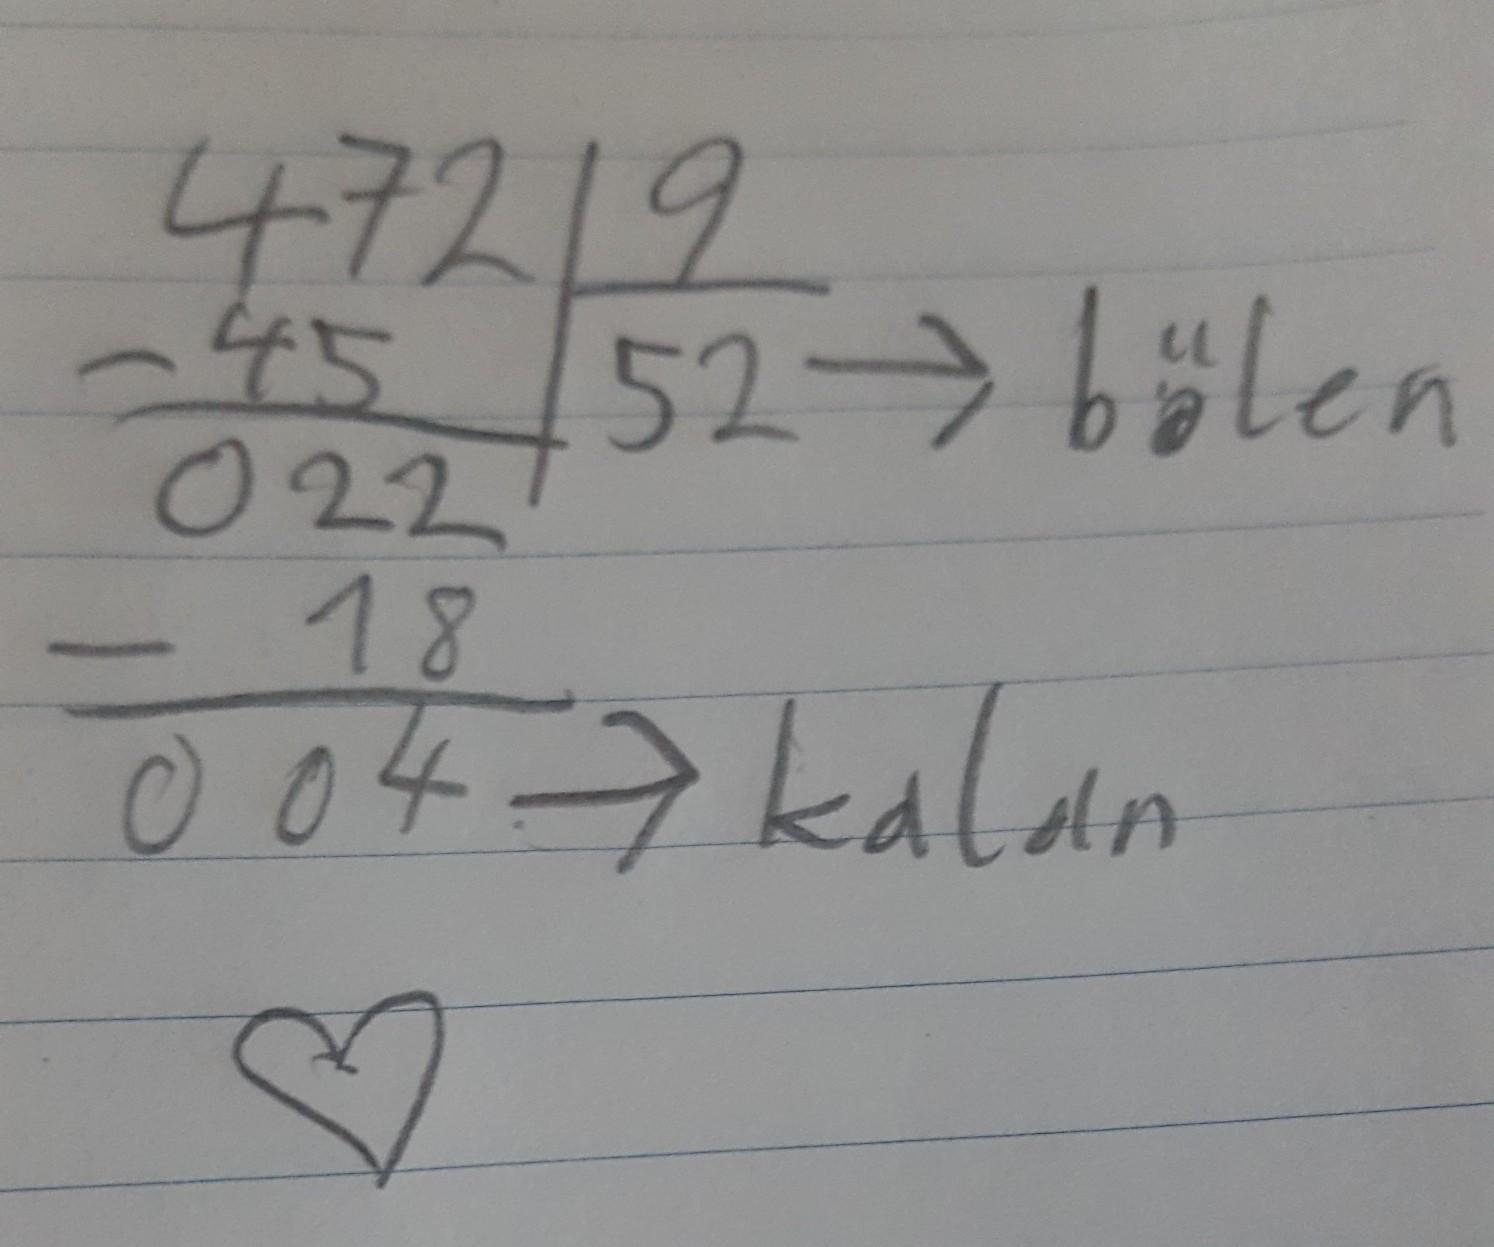 472 9
- 45 52 → bölen
022
- 18
004 → kalan